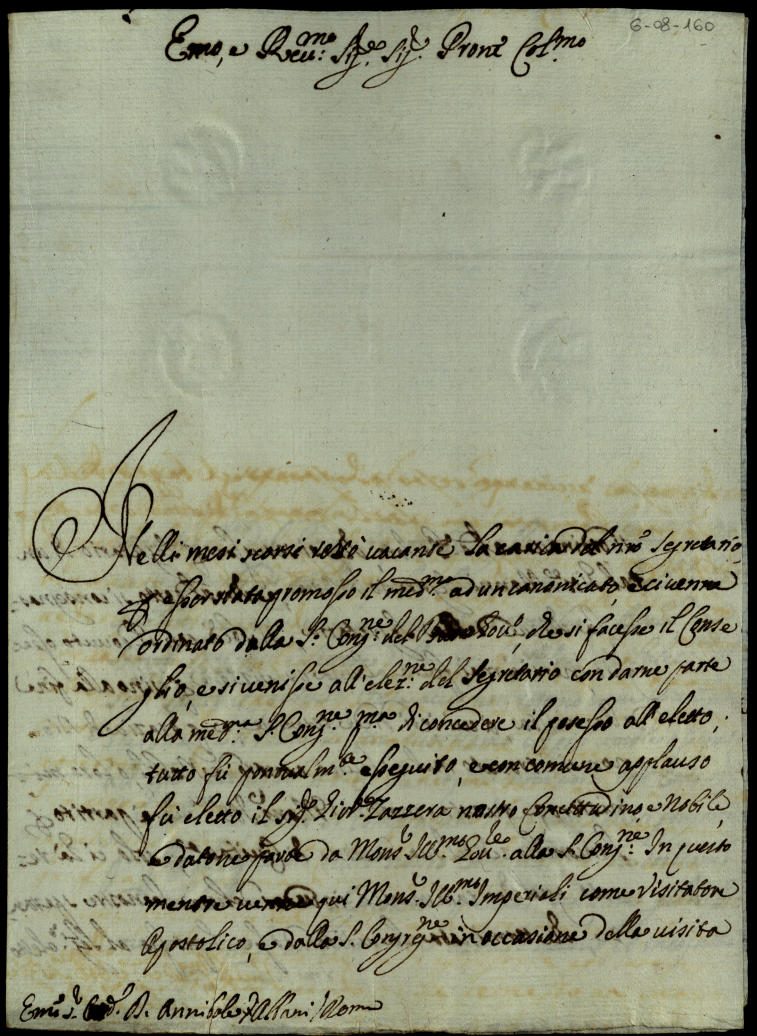 6-08-160
Emo, e Reu:mo Sig.e Sig.r Prone Col.mo
Nelli mesi scorsi restò vacante la carica del nro Segretario
esser stato promosso il med.mo ad un canonicato, e ci venne
ordinato dalla S. Cong.ne del Gou.o, che si facesse il Conse
glio, e si venisse all'elez.ne del Segretario con darne parte
alla med.ma S. Cong.ne pma di concedere il posesso all'eletto;
tutto fù pontualm.te esseguito, e con comune applauso
fù eletto il Sig.r Zazzera nostro Concittadino, e Nobile,
e datone parte da Mons.r Ill.mo Gou.re alla S. Cong.ne. In questo
mentre venne qui Mons.r Ill.mo Imperiali come Visitatore
Apostolico, e dalla S. Congrg.ne in occasione della visita
Emo S.r Card. D. Annibale Albani / Roma